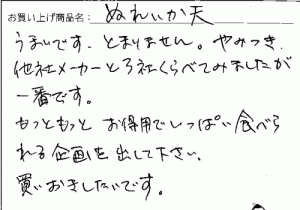 お買い上げ商品名: ぬれいか天
うまいです. とまりません。やみつき.
他社メーカーと3社くらべてみましたが
一番です。
もっともっと お得用でいっぱい食べら
れる企画を出して下さい.
買いおきしたいです。